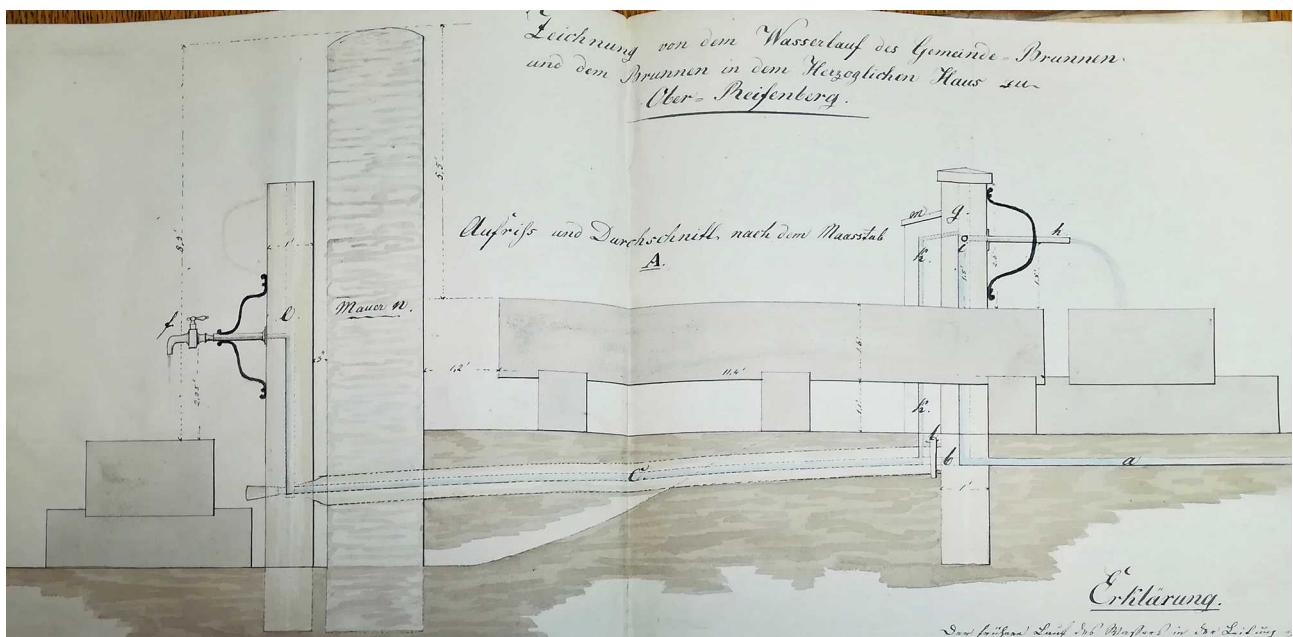 Zeichnung von dem Wasserlauf des Gemeinde-Brunnen
und dem Brunnen in dem Herzoglichen Haus zu
Ober-Reifenberg.
Aufriss und Durchschnitt nach dem Maasstab
A.
5,5'
8,9'
1'
m
g.
h
i
k.
1,5'
e
f
Mauer n.
5"
2,05'
1,2'
11,4'
1,6'
k.
l
b
c.
a
1'
Erklärung.
Der frühere Lauf des Wassers in der Leitung